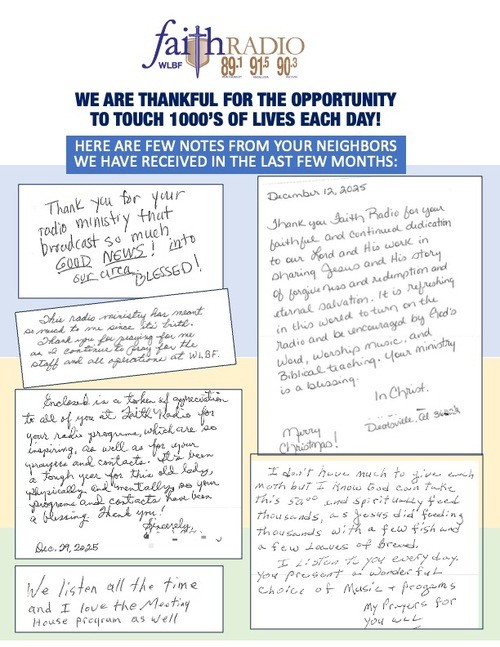 faith RADIO
WLBF 89.1 91.5 90.3
WE ARE THANKFUL FOR THE OPPORTUNITY
TO TOUCH 1000'S OF LIVES EACH DAY!
HERE ARE FEW NOTES FROM YOUR NEIGHBORS
WE HAVE RECEIVED IN THE LAST FEW MONTHS:
Thank you for your
radio ministry that
broadcast so much
GOOD NEWS! into
our area. BLESSED!
This radio ministry has meant
so much to me since its birth.
Thank you for praying for me
as I continue to pray for the
staff and all operations at WLBF.
Enclosed is a token of appreciation
to all of you at Faith Radio for
your radio programs, which are so
inspiring, as well as for your
prayers and contacts. It's been
a tough year for this old lady,
physically and mentally, so your
programs and contacts have been
a blessing. Thank you!
Sincerely,
Dec. 29, 2025
We listen all the time
and I love the Meeting
House program as well
December 12, 2025
Thank you Faith Radio for your
faithful and continued dedication
to our Lord and His work in
sharing Jesus and His story
of forgiveness and redemption and
eternal salvation. It is refreshing
in this world to turn on the
radio and be encouraged by God's
Word, worship music, and
Biblical teaching. Your ministry
is a blessing.
In Christ,
Merry
Christmas!
I don't have much to give each
moth but I know God can take
this 50⁰⁰ and spiritually feed
thousands, as Jesus did feeding
thousands with a few fish and
a few loaves of bread.
I listen to you every day.
You present a wonderful
choice of Music & progams
My Prayers for
you all